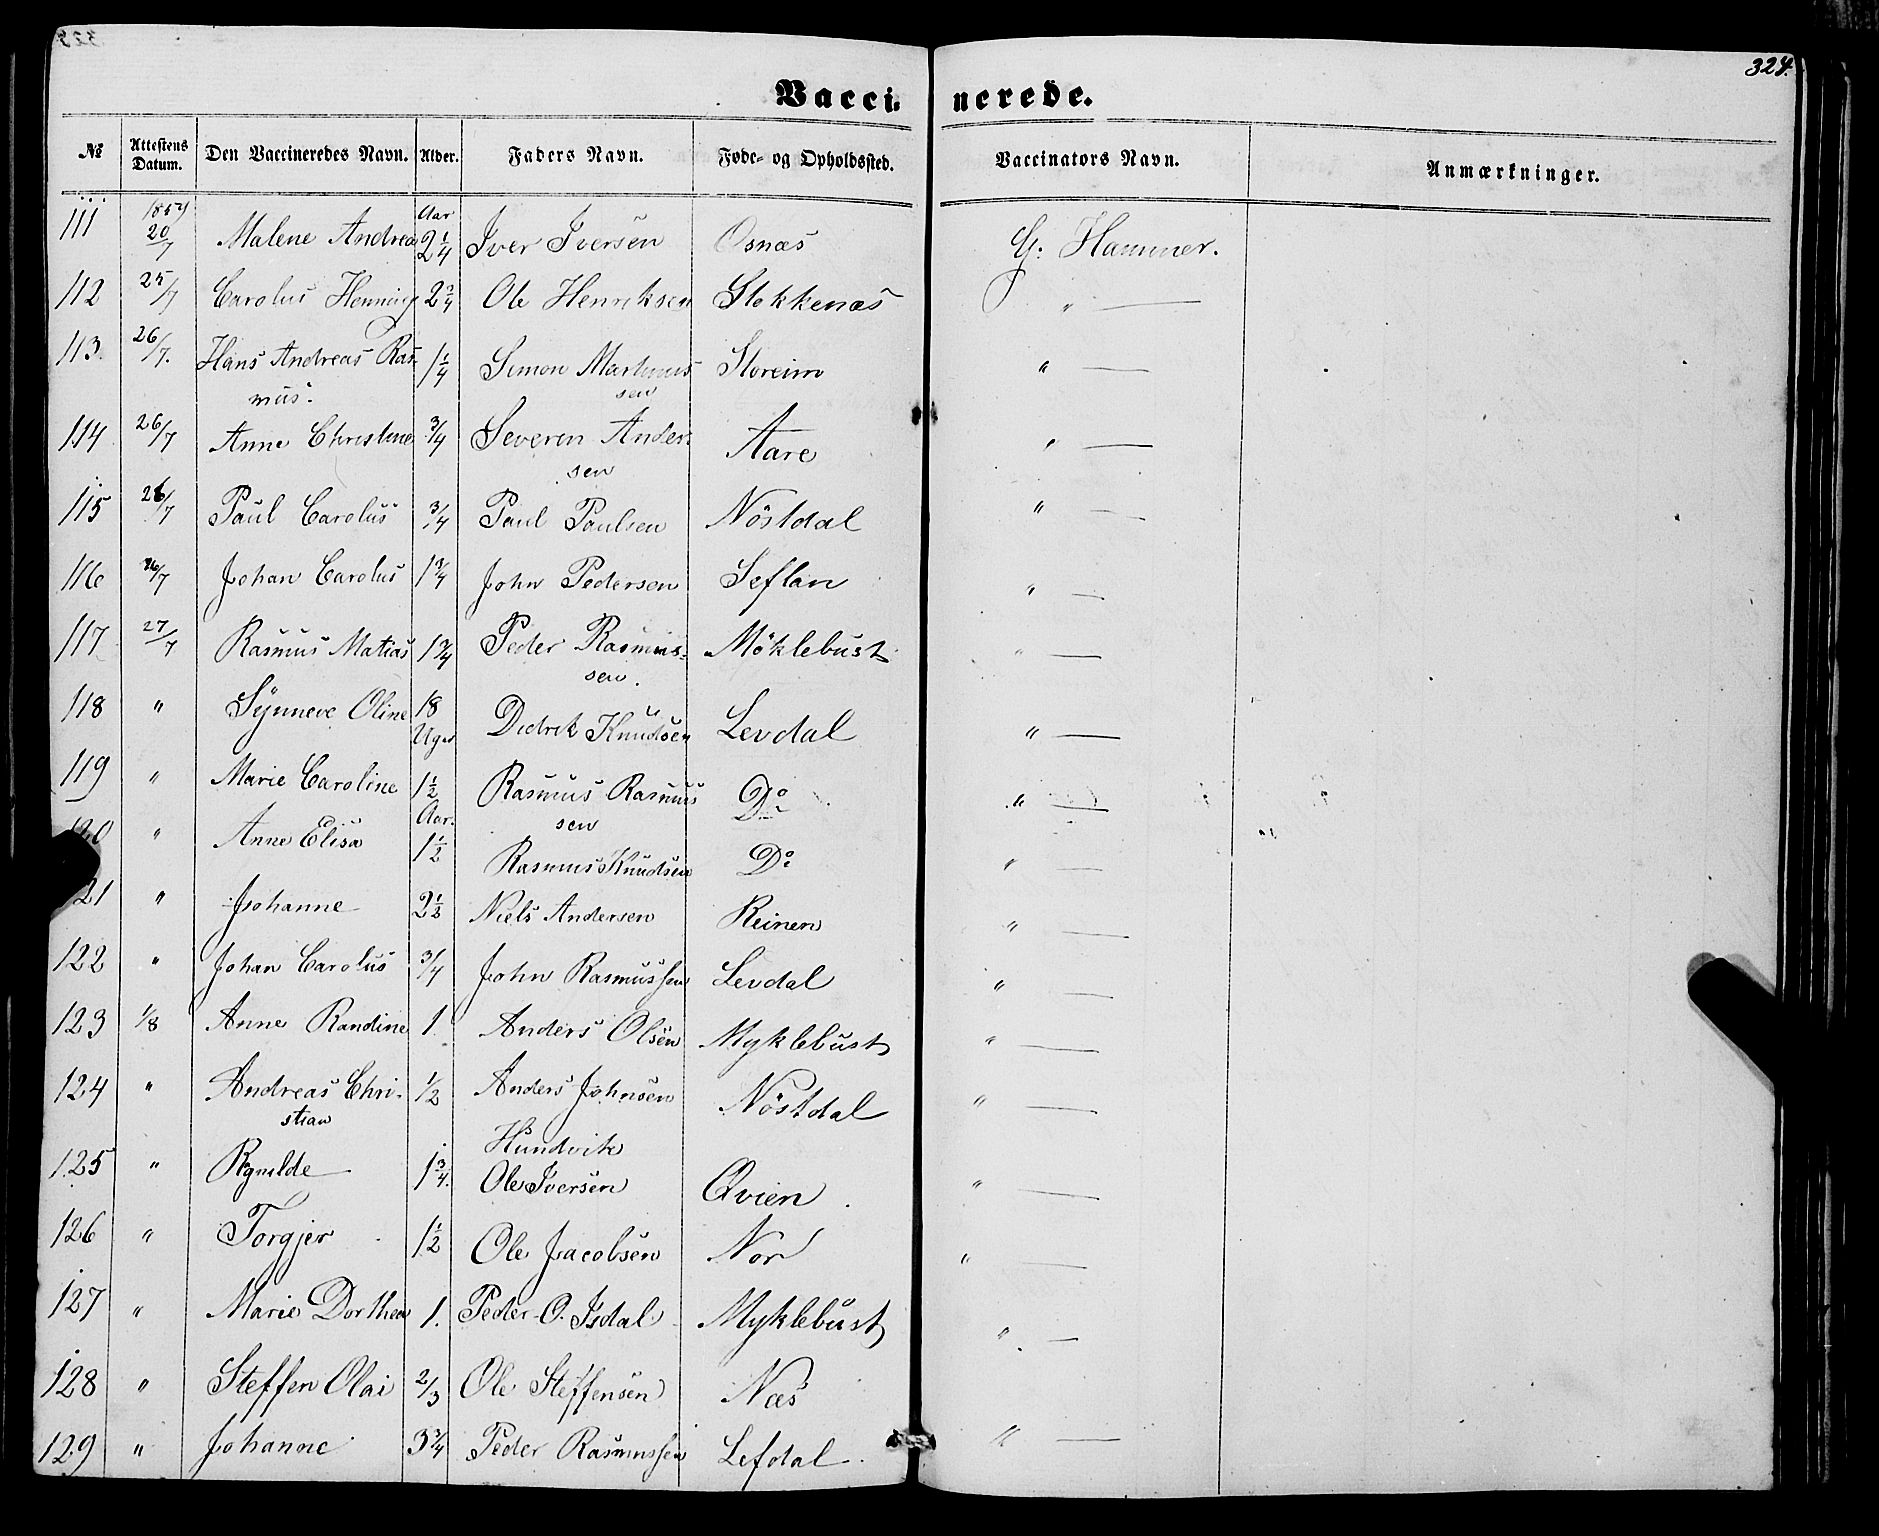 324.
Vaccinerede.
№ Attestens Datum. Den Vaccineredes Navn. Alder. Faders Navn. Føde- og Opholdssted. Vaccinators Navn. Anmærkninger.
111 20/7 Malene Andrea Aar 2 1/4 Iver Iversen Osnæs G. Hammer.
112 25/7 Carolus Henning 2 3/4 Ole Henriksen Stokkenæs " —
113. 26/7. Hans Andreas Ras- 1 1/4 Simon Martinus Storeim " —
mus. sen
114 26/7 Anne Christine 3/4 Severin Ander- Aare " —
sen
115 26/7 Paul Carolus 3/4 Paul Paulsen Nöstdal " —
116 26/7 Johan Carolus 1 3/4 John Pedersen Seflan " —
117 27/7 Rasmus Matias 1 3/4 Peder Rasmus- Möklebust " —
sen.
118 " Synneve Oline 18 Uger Didrik Knudsen Levdal " —
119 " Marie Caroline 1 1/2 Aar. Rasmus Rasmus Do " —
sen
120 " Anne Elisa 1 1/2 Rasmus Knudsen Do " —
121 " Johanne 2 1/2 Niels Andersen Reinen " —
122 " Johan Carolus 3/4 John Rasmussen Levdal " —
123 1/8 Anne Randine 1. Anders Olsen Myklebust " —
124 " Andreas Chri- 1/2 Anders Johnsen Nöstdal " —
stian Hundvik
125 " Rgnilde 1 3/4. Ole Iversen Qvien " —
126 " Torgjer 1 1/2 Ole Jacobsen Nor " —
127 " Marie Dorthea 1. Peder O. Isdal Myklebust " —
128 " Steffen Olai 2/3 Ole Steffensen Næs
129 " Johanne 3 3/4 Peder Rasmussen Lefdal. " —